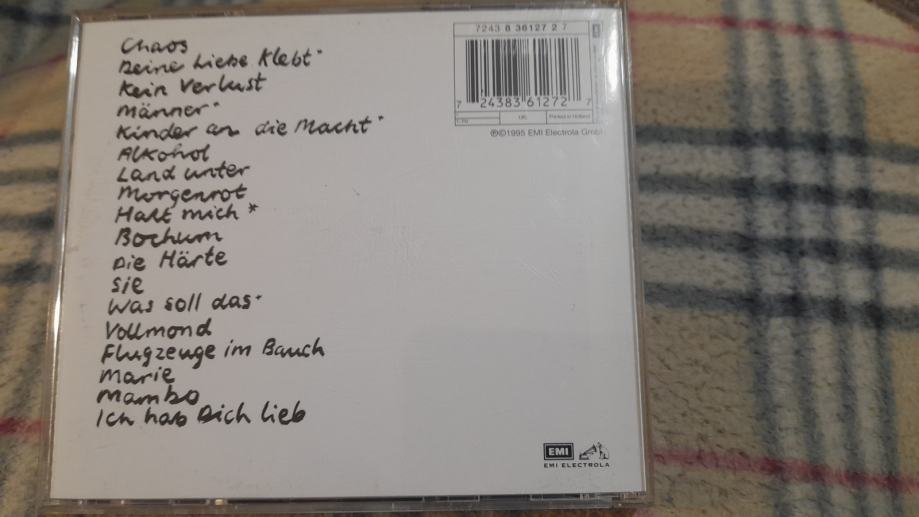 Chaos
Deine Liebe Klebt*
Kein Verlust
Männer*
Kinder an die Macht*
Alkohol
Land unter
Morgenrot
Halt mich *
Bochum
Die Härte
Sie
Was soll das*
Vollmond
Flugzeuge im Bauch
Marie
Mambo
Ich hab Dich lieb
7243 8 36127 2 7
7 24383 61272 7
UK:
Printed in Holland
℗©1995 EMI Electrola GmbH
EMI
EMI ELECTROLA